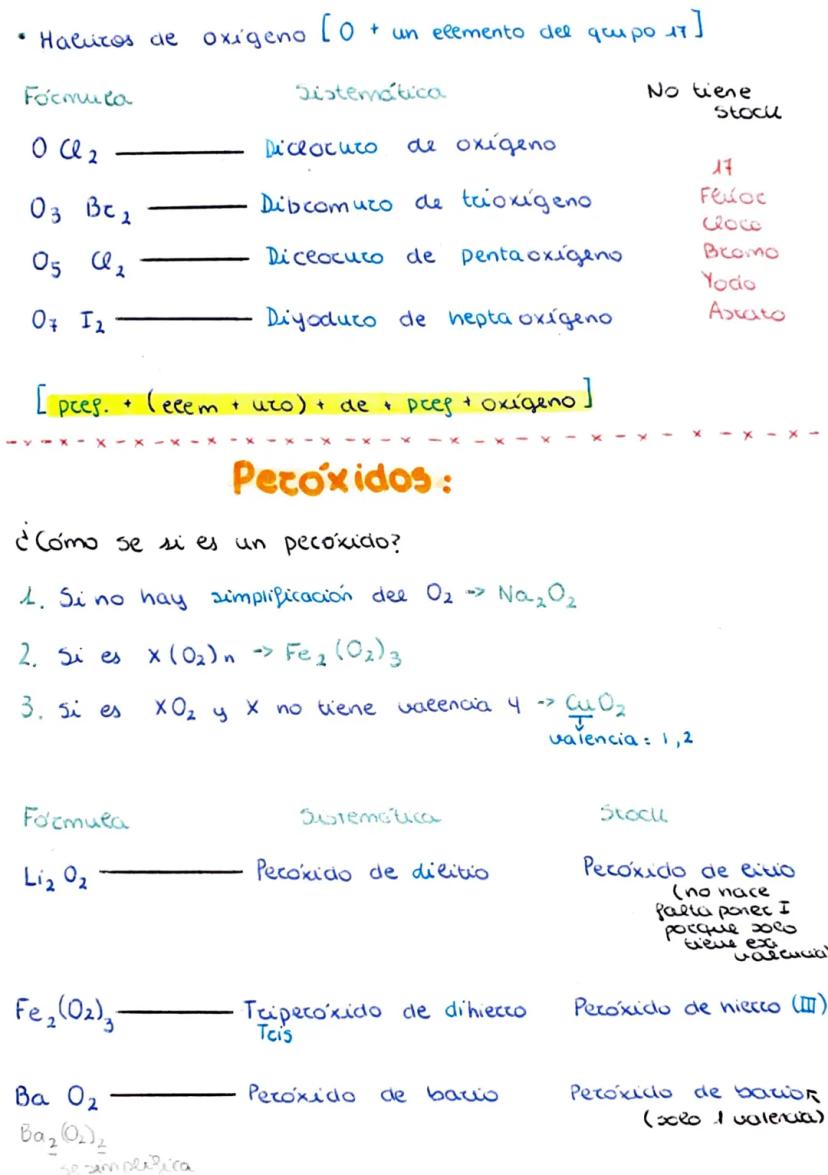 • Haluros de oxígeno [O + un elemento del grupo 17]
Fórmula Sistemática No tiene
Stock
O Cl2 Dicloruro de oxígeno
O3 Br2 Dibromuro de trioxígeno
O5 Cl2 Dicloruro de pentaoxígeno
O7 I2 Diyoduro de heptaoxígeno
17
Flúor
Cloro
Bromo
Yodo
Astato
[pref. + (elem + uro) + de + pref + oxígeno]
Peróxidos:
¿Cómo se si es un peróxido?
1. Si no hay simplificación del O2 -> Na2O2
2. Si es X(O2)n -> Fe2(O2)3
3. Si es XO2 y X no tiene valencia 4 -> CuO2
valencia: 1,2
Fórmula Sistemática Stock
Li2 O2 Peróxido de dilitio Peróxido de litio
(no hace
falta poner I
porque solo
tiene esa
valencia)
Fe2(O2)3 Triperóxido de dihierro Peróxido de hierro (III)
Tris
Ba O2 Peróxido de bario Peróxido de bario
(solo 1 valencia)
Ba2(O2)2
se simplifica